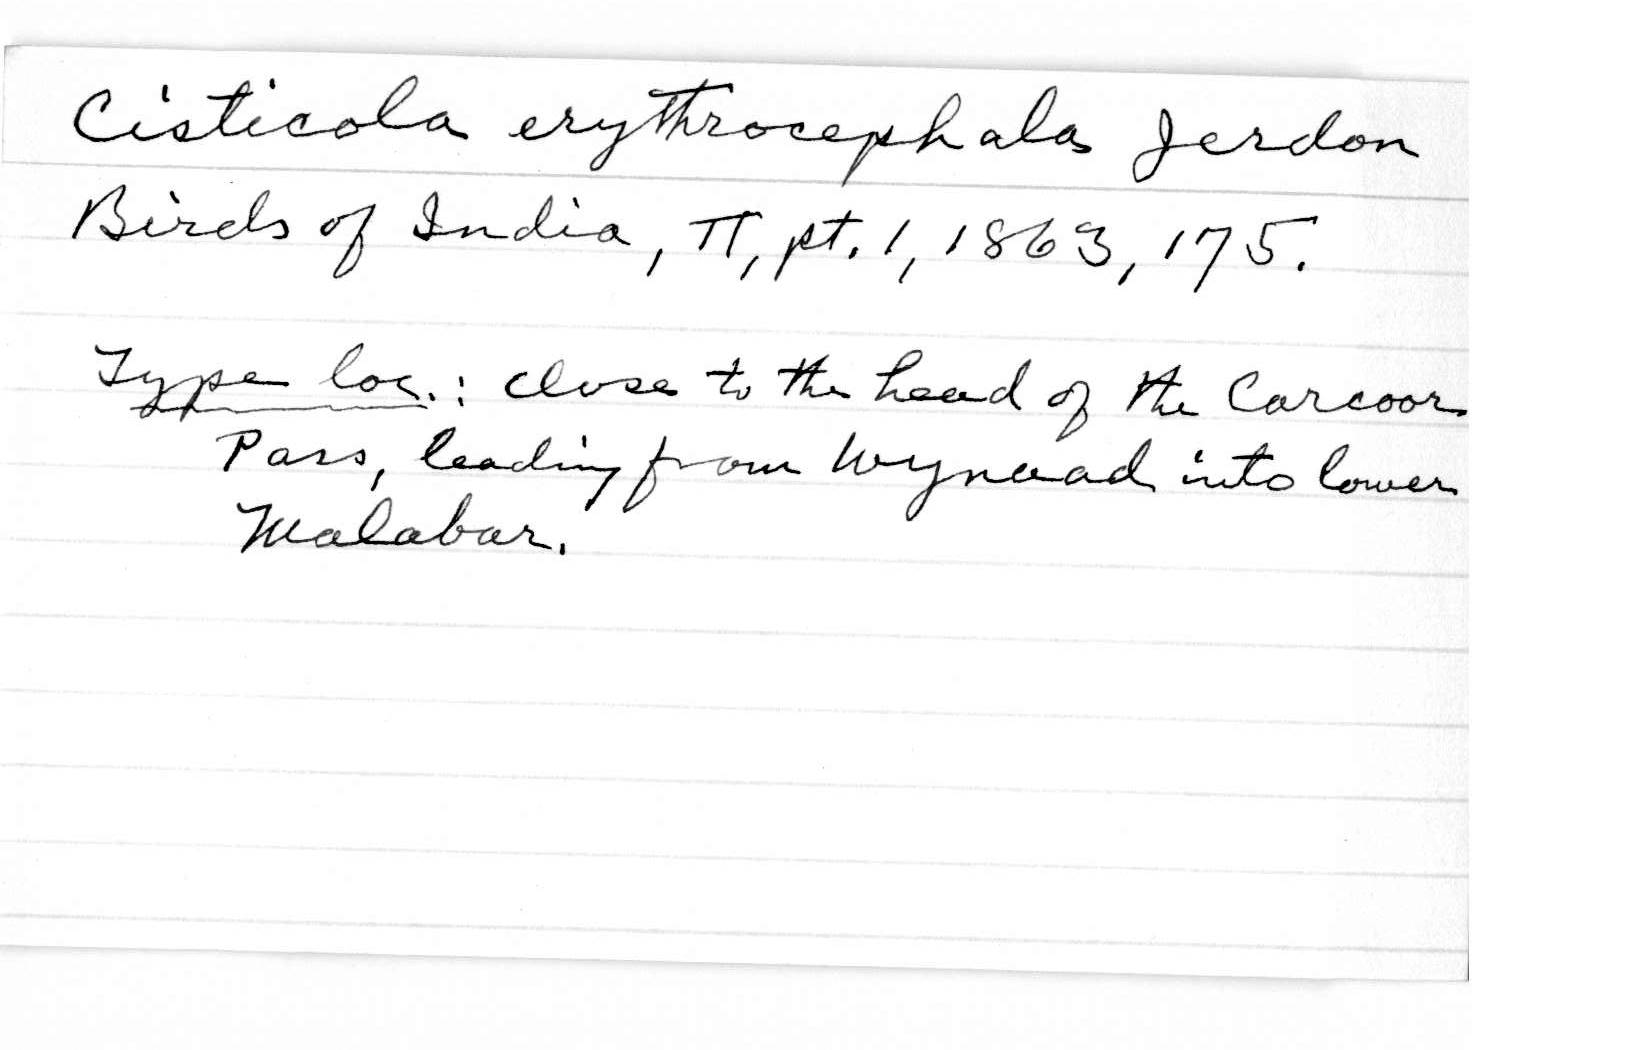 Cisticola erythrocephala Jerdon
Birds of India, II, pt. 1, 1863, 175.
Type loc.: close to the head of the Carcoor
Pass, leading from Wynaad into lower
Malabar.